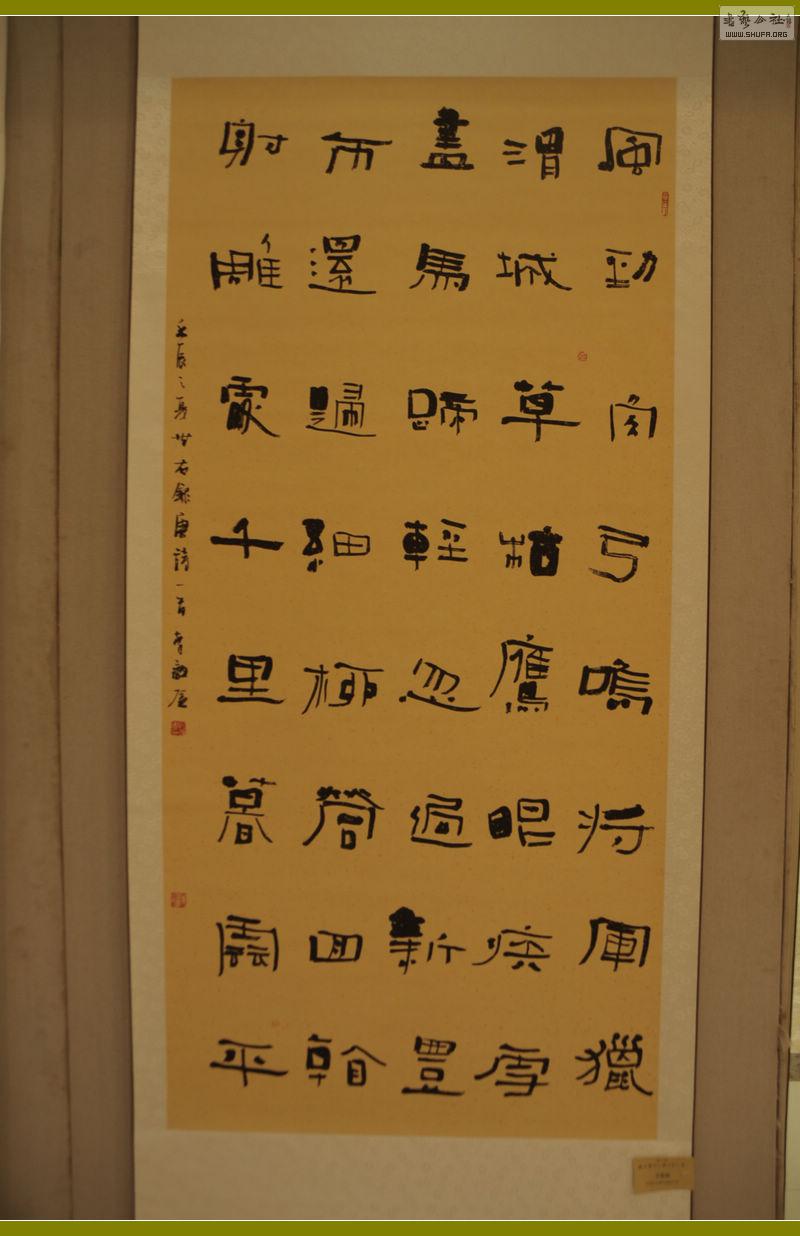 書藝公社
WWW.SHUFA.ORG
風勁角弓鳴將軍獵
渭城草枯鷹眼疾雪
盡馬蹄輕忽過新豐
市還歸細柳營回看
射雕處千里暮雲平
壬辰之夏 右錄唐詩一首